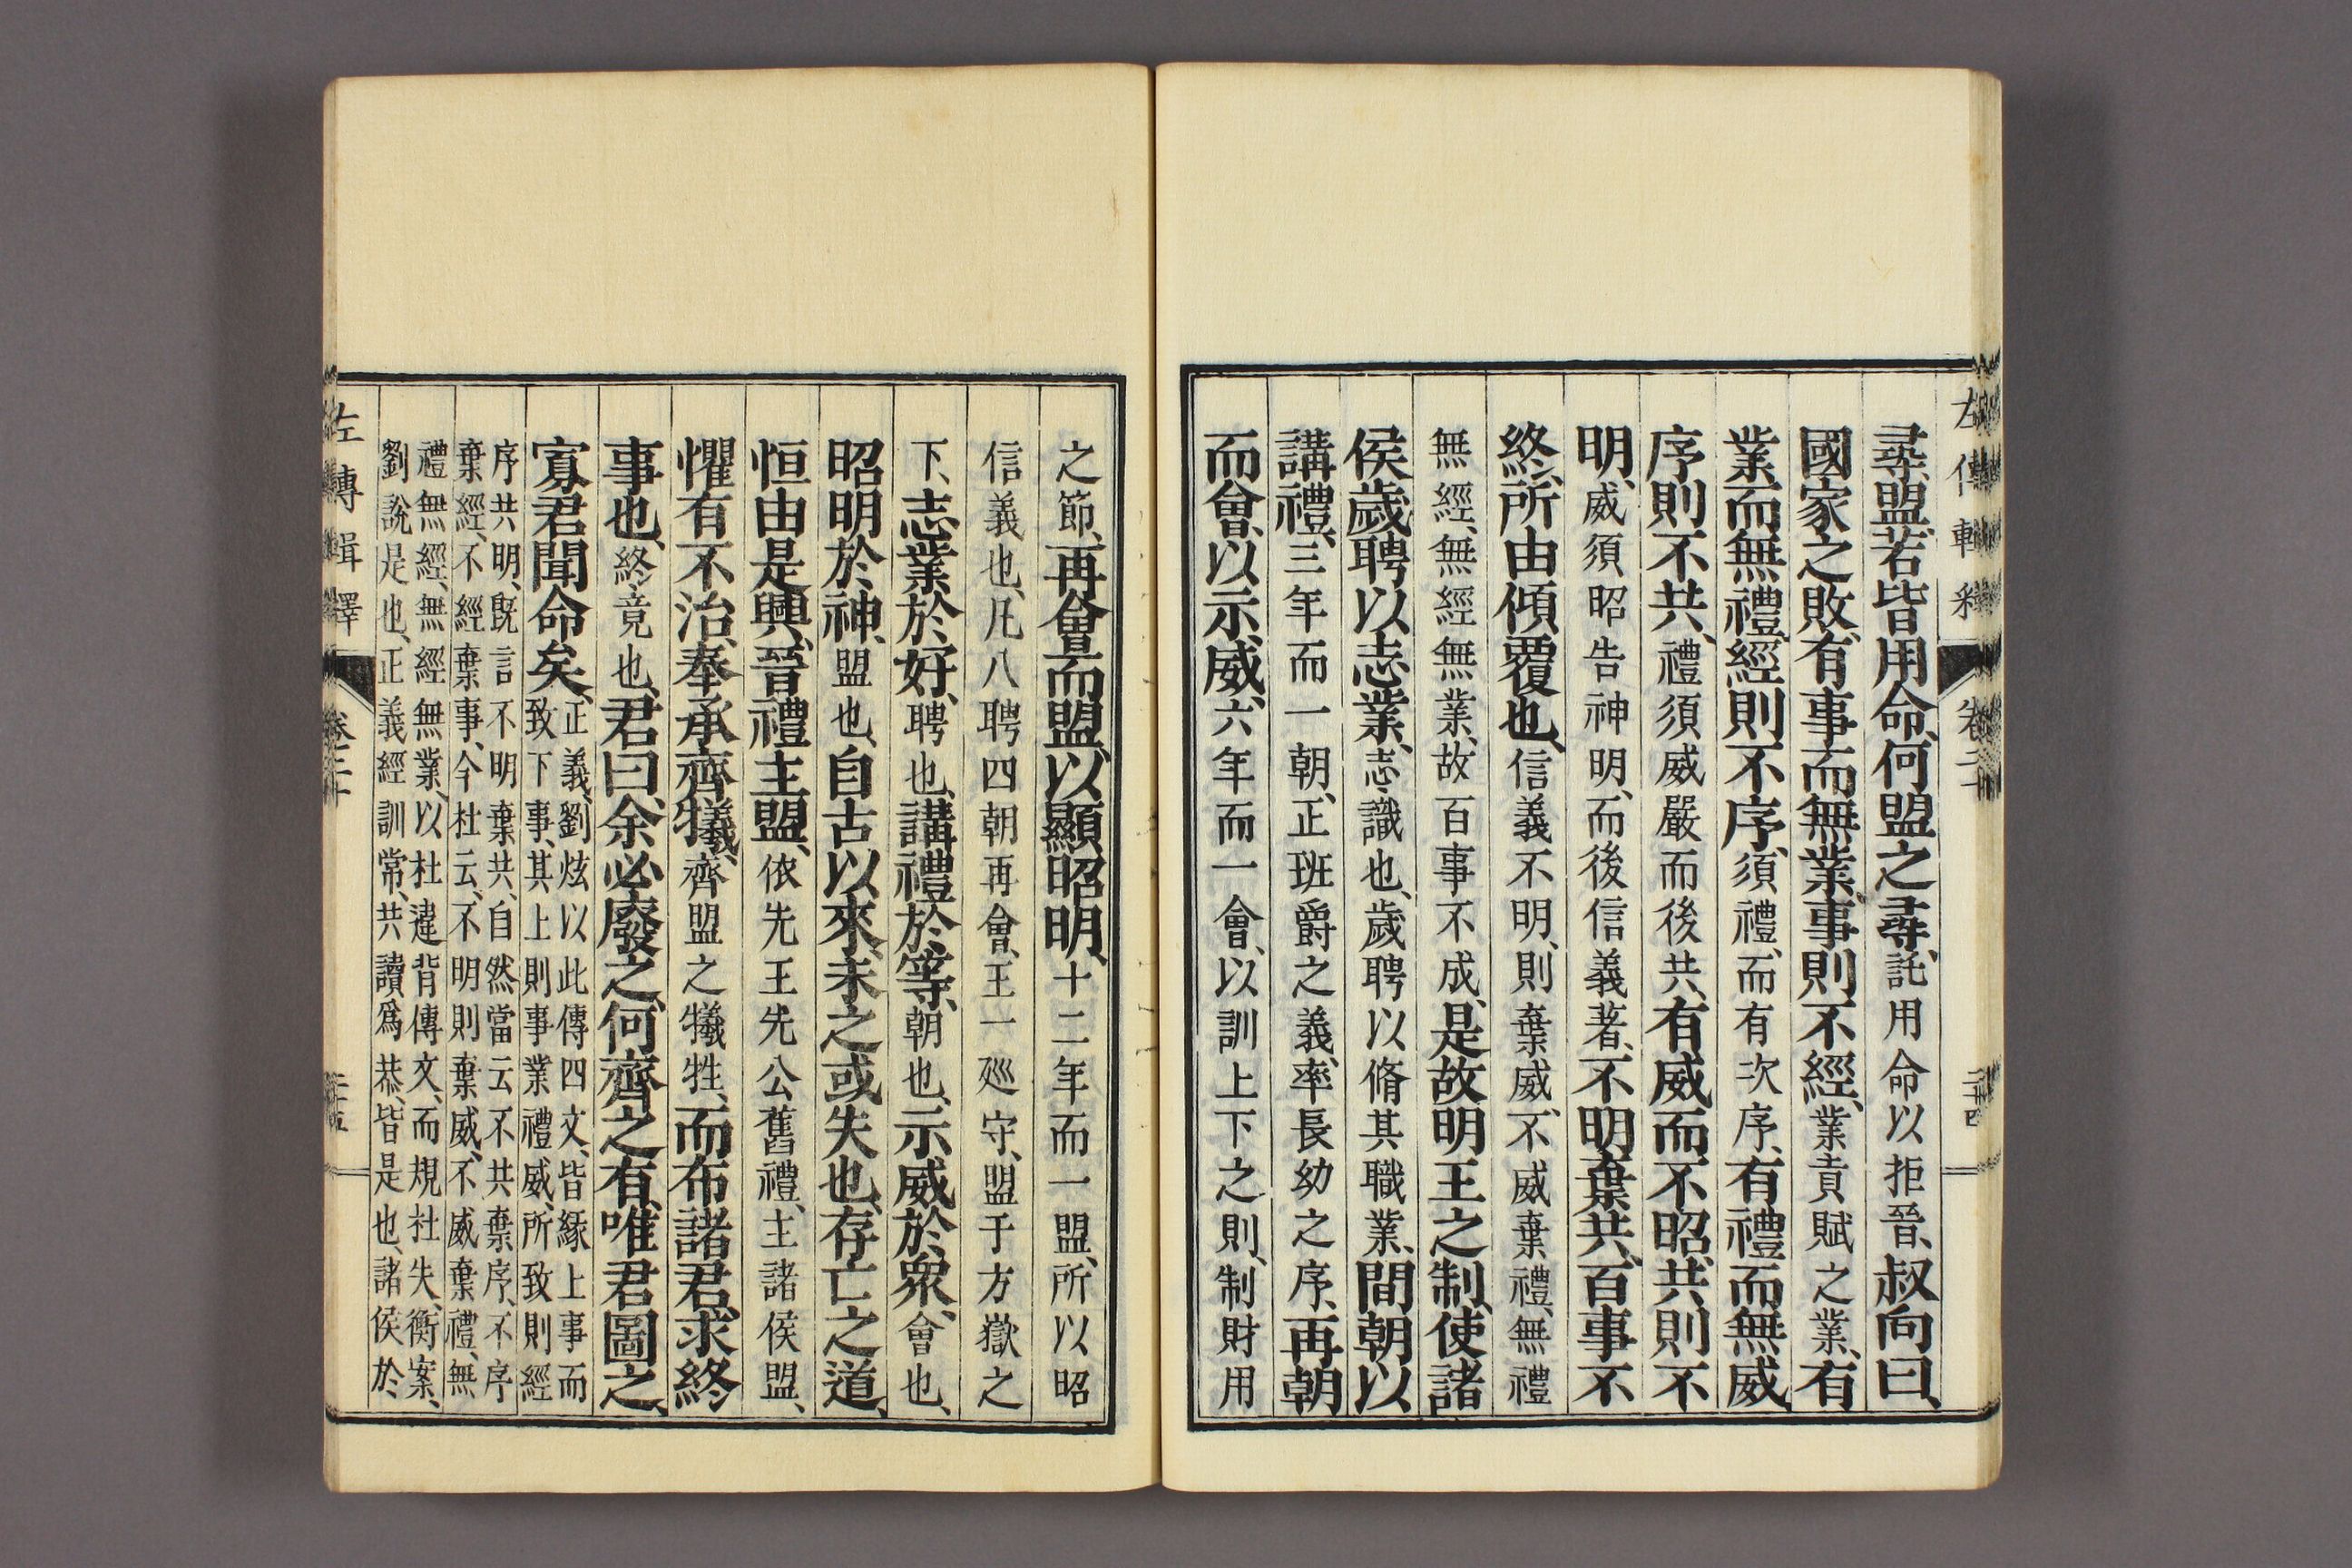 左傳輯釋 卷二十 二十四
尋盟、若皆用命、何盟之尋、託用命以拒晉、叔向曰、
國家之敗、有事而無業、事則不經、業貢賦之業、有
業而無禮、經則不序、須禮、而有次序、有禮而無威、
序則不共、禮須威嚴而後共、有威而不昭、共則不
明、威須昭告神明、而後信義著、不明棄共、百事不
終、所由傾覆也、信義不明、則棄威、不威棄禮、無禮
無經、無經無業、故百事不成、是故明王之制、使諸
侯歲聘以志業、志識也、歲聘以脩其職業、間朝以
講禮、三年而一朝、正班爵之義、率長幼之序、再朝
而會、以示威、六年而一會、以訓上下之則、制財用
之節、再會而盟、以顯昭明、十二年而一盟、所以昭
信義也、凡八聘四朝再會、王一巡守、盟于方嶽之
下、志業於好、聘也、講禮於等、朝也、示威於衆、會也、
昭明於神、盟也、自古以來、未之或失也、存亡之道、
恒由是興、晉禮主盟、依先王先公舊禮、主諸侯盟、
懼有不治、奉承齊犧、齊盟之犧牲、而布諸君、求終
事也、終竟也、君曰、余必廢之、何齊之有、唯君圖之、
寡君聞命矣、正義、劉炫以此傳四文、皆緣上事而
致下事、其上則事業禮威、所致則經
序共明、旣言不明棄共、自然當云不共棄序、不序
棄經、不經棄事、今杜云、不明則棄威、不威棄禮、無
禮無經、無經無業、以杜違背傳文、而規杜失、衡案、
劉說是也、正義經訓常、共讀爲恭、皆是也、諸侯於
左傳輯釋 卷二十 二十五